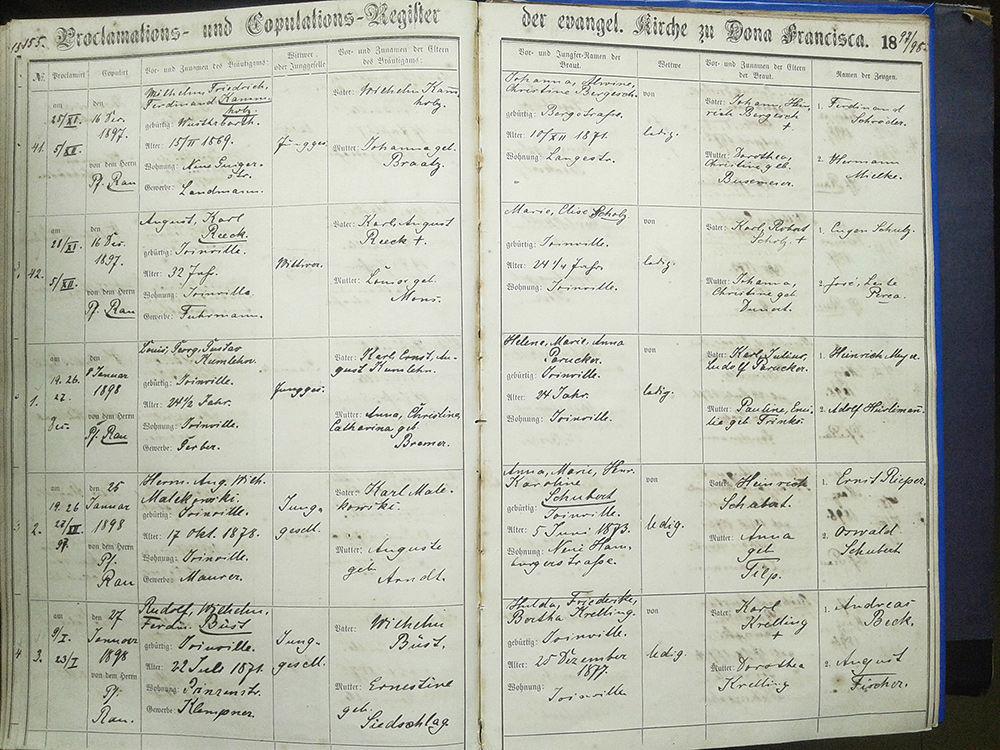 155. Proclamations- und Copulations-Register
der evangel. Kirche zu Dona Francisca. 1897/98.
No. Proclamirt Copulirt Vor- und Zunamen des Bräutigams: Wittwer oder Junggeselle Vor- und Zunamen der Eltern des Bräutigams:
Vor- und Jungfer-Namen der Braut. Wittwe. Vor- und Zunamen der Eltern der Braut. Namen der Zeugen.
41.
am 25/XI.
5/XII.
den 16 Dec.
1897.
von dem Herrn
Pf. Rau
Wilhelm, Friedrich,
Ferdinand Kamm-
holz.
gebürtig:
Alter: 15/II 1869.
Wohnung:
Gewerbe: Landmann.
Jungges.
Vater: Wilhelm Kam
holz.
Mutter: Johanna geb.
Braatz.
Johanna, Alwine,
Christine Bergesch.
gebürtig:
Alter: 10/XII 1871.
Wohnung: Langestr.
von
ledig.
Vater: Johann Hein
rich Bergesch
+
Mutter: Dorothea,
Christine geb.
Busemeier.
1. Ferdinand
Schröder.
2. Hermann
Mielke.
42.
am 28/XI.
5/XII.
den 16 Dec.
1897.
von dem Herrn
Pf. Rau
August, Karl
Reeck.
gebürtig: Joinville.
Alter: 32 Jahr.
Wohnung: Joinville.
Gewerbe: Fuhrmann.
Wittwer.
Vater: Karl, August
Reeck +.
Mutter: geb.
Marie, Elise Scholz
gebürtig: Joinville.
Alter: 24 1/4 Jahr
Wohnung: Joinville.
von
ledig.
Vater: Karl, Robert
Scholz. +
Mutter: Johanna,
Christine geb.
1. Eugen Schulz.
2. José, Leite
1.
am
19. 26.
27.
Dec.
den
8 Januar
1898
von dem Herrn
Pf. Rau
Louis, Georg, Gustav
Kumlehn.
gebürtig: Joinville.
Alter: 24 1/2 Jahr.
Wohnung: Joinville.
Gewerbe: Gerber.
Jungges.
Vater: Karl, Ernst, Au-
gust Kumlehn.
Mutter: Anna, Christine,
Catharina geb
Bremer.
Helene, Marie, Anna
Parucker.
gebürtig: Joinville.
Alter: 24 Jahr.
Wohnung: Joinville.
von
ledig.
Vater: Karl, Julius,
Rudolf Parucker.
Mutter: Pauline, Emi
lie geb
1. Heinrich Meyer.
2. Adolf Hürlimann.
2.
am
19. 26
27/XII
97.
den 25
Januar
1898
von dem Herrn
Pf.
Rau
Herm. Aug. Wilh.
Malekowski.
gebürtig: Joinville.
Alter: 17 Okt. 1878.
Wohnung: Joinville.
Gewerbe: Maurer.
Jung-
gesell.
Vater: Karl Male-
kowski.
Mutter: Auguste
geb
Arndt.
Anna, Marie, Henr.
Karoline
Schubert
gebürtig: Joinville.
Alter: 5 Juni 1873.
Wohnung: Neue Ham-
burgerstraße.
von
ledig.
Vater: Heinrich
Schubert.
Mutter: Anna
geb
Tilp.
1. Ernst Rieper.
2. Oswald
Schubert
3.
am
9/I.
23/I
den 27
Januar
1898
von dem Herrn
Pf.
Rau.
Rudolf, Wilhelm,
Ferdin. Büst.
gebürtig: Joinville.
Alter: 22 Juli 1871.
Wohnung: Prinzenstr.
Gewerbe: Klempner.
Jung-
gesell.
Vater: Wilhelm
Büst.
Mutter: Ernestine
geb.
Siedschlag
Hulda, Friederike,
Bertha Krelling.
gebürtig: Joinville.
Alter: 25 Dezember
1877.
Wohnung: Joinville
von
ledig.
Vater: Karl
Krelling
+
Mutter: Dorothea
Krelling
1. Andreas
Beck.
2. August
Fischer.